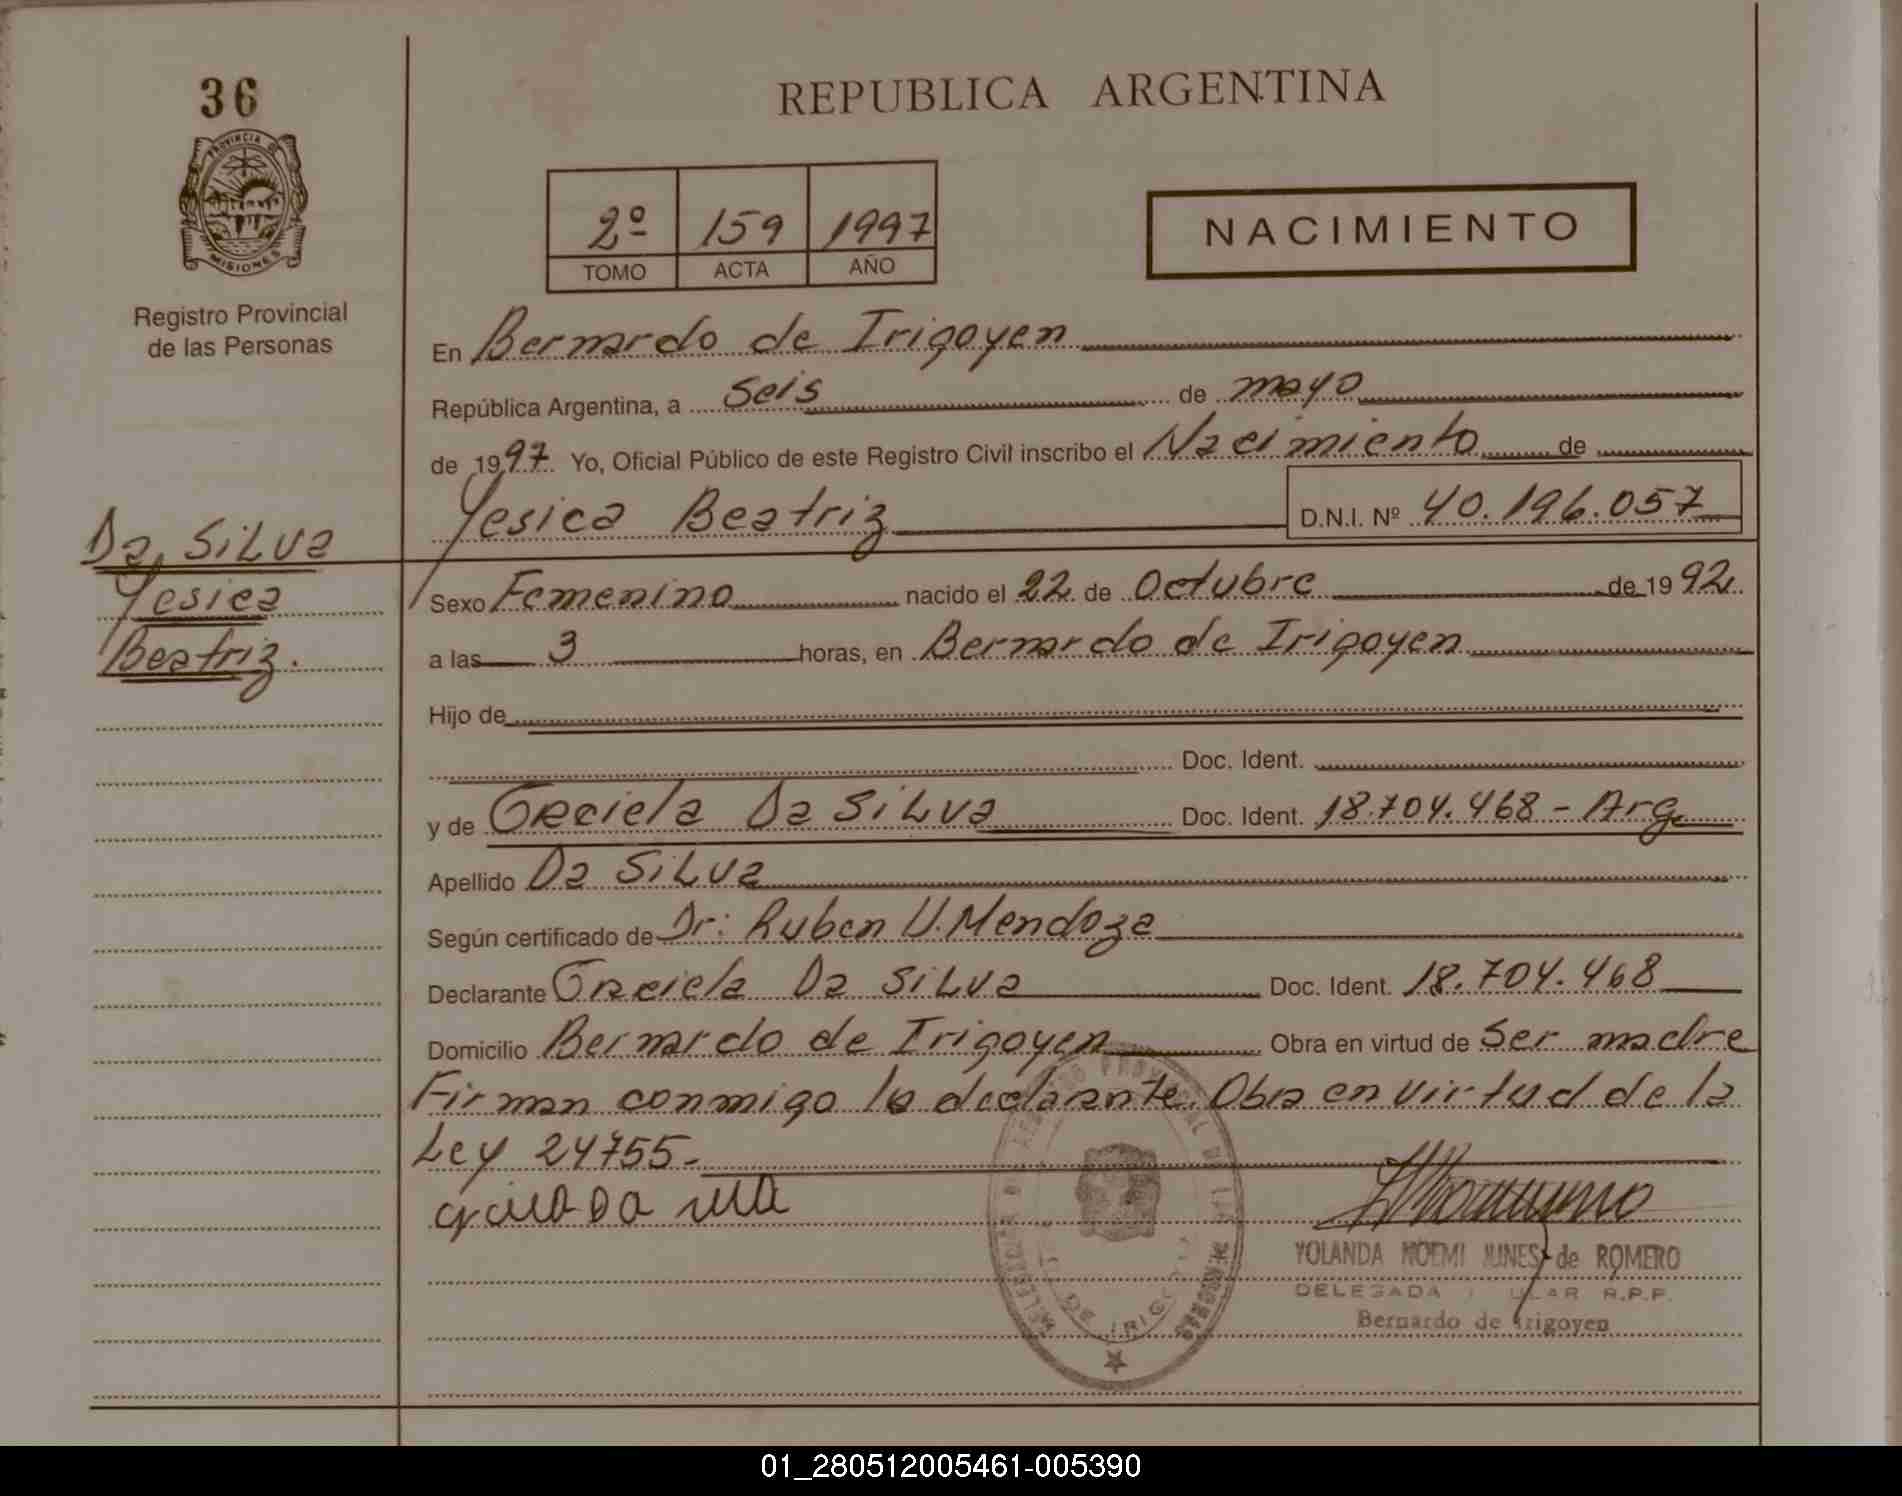 36
REPUBLICA ARGENTINA
PROVINCIA DE
MISIONES
Registro Provincial
de las Personas
2º 159 1997
TOMO ACTA AÑO
NACIMIENTO
En Bernardo de Irigoyen
República Argentina, a seis de mayo
de 1997 Yo, Oficial Público de este Registro Civil inscribo el Nacimiento de
Yesica Beatriz D.N.I. Nº 40.196.057
Da Silva
Yesica
Beatriz.
Sexo Femenino nacido el 22 de Octubre de 1992
a las 3 horas, en Bernardo de Irigoyen
Hijo de
Doc. Ident.
y de Graciela Da Silva Doc. Ident. 18.704.468 - Arg.
Apellido Da Silva
Según certificado de Dr: Ruben U. Mendoza
Declarante Graciela Da Silva Doc. Ident. 18.704.468
Domicilio Bernardo de Irigoyen Obra en virtud de Ser madre
Firman conmigo la declarante. Obra en virtud de la
Ley 24755-
YOLANDA NOEMI de ROMERO
DELEGADA R.P.P.
Bernardo de Irigoyen
01_280512005461-005390